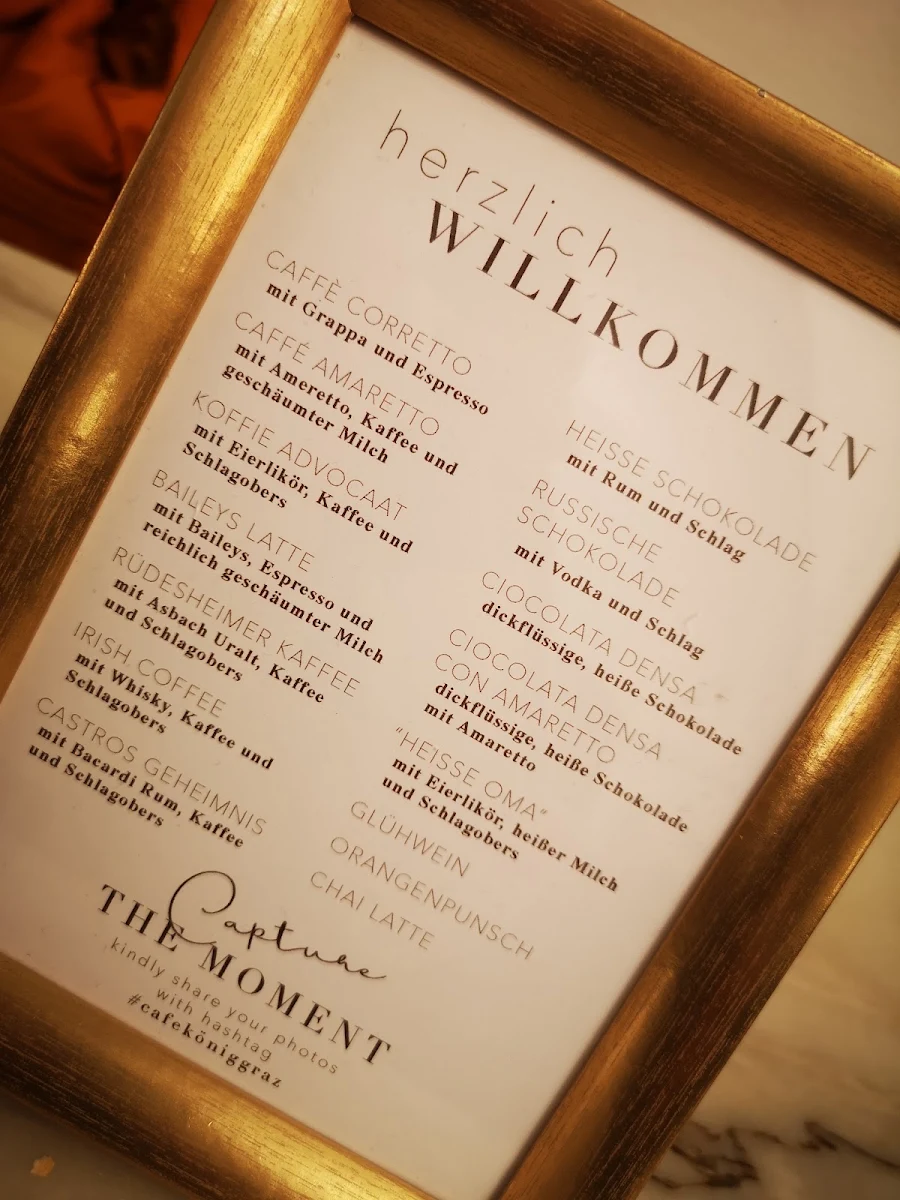 herzlich
WILLKOMMEN
CAFFÈ CORRETTO
mit Grappa und Espresso
CAFFÉ AMARETTO
mit Ameretto, Kaffee und
geschäumter Milch
KOFFIE ADVOCAAT
mit Eierlikör, Kaffee und
Schlagobers
BAILEYS LATTE
mit Baileys, Espresso und
reichlich geschäumter Milch
RÜDESHEIMER KAFFEE
mit Asbach Uralt, Kaffee
und Schlagobers
IRISH COFFEE
mit Whisky, Kaffee und
Schlagobers
CASTROS GEHEIMNIS
mit Bacardi Rum, Kaffee
und Schlagobers
HEISSE SCHOKOLADE
mit Rum und Schlag
RUSSISCHE
SCHOKOLADE
mit Vodka und Schlag
CIOCOLATA DENSA
dickflüssige, heiße Schokolade
CIOCOLATA DENSA
CON AMARETTO
dickflüssige, heiße Schokolade
mit Amaretto
"HEISSE OMA"
mit Eierlikör, heißer Milch
und Schlagobers
GLÜHWEIN
ORANGENPUNSCH
CHAI LATTE
Capture
THE MOMENT
kindly share your photos
with hashtag
#cafeköniggraz